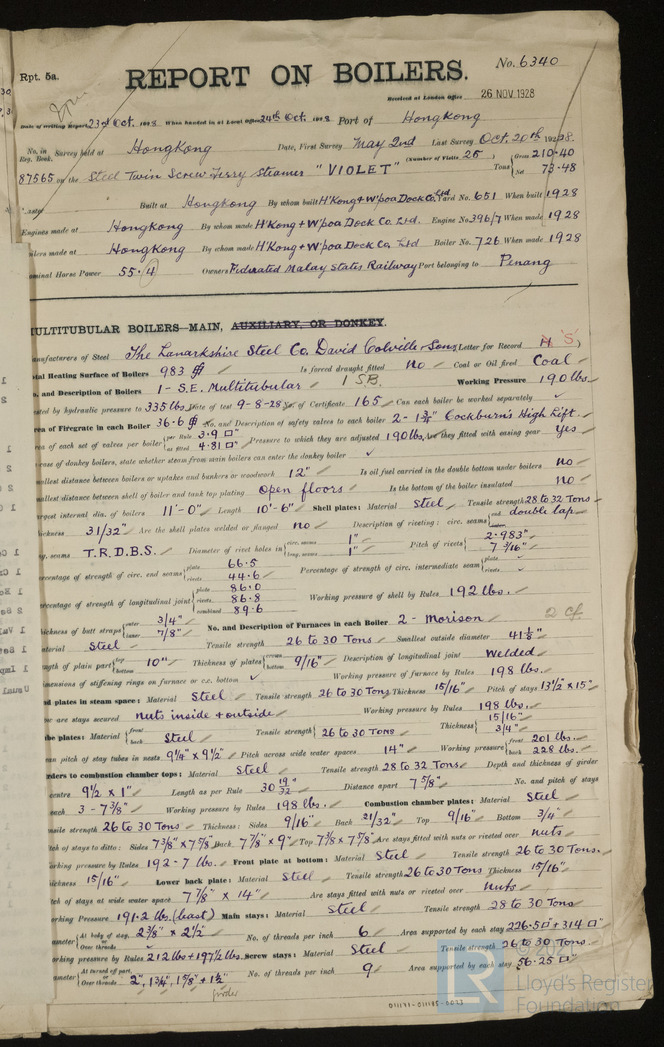 Rpt. 5a.
REPORT ON BOILERS.
No. 6340
Received at London Office 26 NOV. 1928
Date of writing Report 23rd Oct. 1928 When handed in at Local Office 24th Oct. 1928 Port of Hongkong
No. in Reg. Book. Survey held at Hongkong Date, First Survey May 2nd Last Survey Oct. 20th 1928
87565 on the Steel Twin Screw Ferry Steamer "VIOLET" (Number of Visits 25) Tons Gross 210.40 Net 73.48
Built at Hongkong By whom built H'Kong & W'poa Dock Co. Ltd Yard No. 651 When built 1928
Engines made at Hongkong By whom made H'Kong & W'poa Dock Co. Ltd. Engine No. 396/7 When made 1928
Boilers made at Hongkong By whom made H'Kong & W'poa Dock Co. Ltd Boiler No. 726 When made 1928
Nominal Horse Power 55.4 Owners Federated Malay States Railway Port belonging to Penang
MULTITUBULAR BOILERS—MAIN, AUXILIARY, OR DONKEY.
Manufacturers of Steel The Lanarkshire Steel Co. David Colville & Sons (Letter for Record S)
Total Heating Surface of Boilers 983 Is forced draught fitted No Coal or Oil fired Coal
No. and Description of Boilers 1 - S.E. Multitubular 1 SB. Working Pressure 190 lbs.
Tested by hydraulic pressure to 335 lbs. Date of test 9-8-28 No. of Certificate 165 Can each boiler be worked separately ✓
Area of Firegrate in each Boiler 36.6 No. and Description of safety valves to each boiler 2 - 1¾" Cockburn's High Lift.
Area of each set of valves per boiler per Rule 3.9 □" as fitted 4.81 □" Pressure to which they are adjusted 190 lbs. Are they fitted with easing gear Yes
In case of donkey boilers, state whether steam from main boilers can enter the donkey boiler ✓
Smallest distance between boilers or uptakes and bunkers or woodwork 12" Is oil fuel carried in the double bottom under boilers No
Smallest distance between shell of boiler and tank top plating Open floors Is the bottom of the boiler insulated No
Largest internal dia. of boilers 11'-0" Length 10'-6" Shell plates: Material Steel Tensile strength 28 to 32 Tons
Thickness 31/32" Are the shell plates welded or flanged No Description of riveting: circ. seams end double lap
long. seams T.R.D.B.S. Diameter of rivet holes in circ. seams 1" long. seams 1" Pitch of rivets 2.983" 7 3/16"
Percentage of strength of circ. end seams plate 66.5 rivets 44.6 Percentage of strength of circ. intermediate seam plate ✓ rivets ✓
Percentage of strength of longitudinal joint plate 86.0 rivets 86.8 combined 89.6 Working pressure of shell by Rules 192 lbs.
Thickness of butt straps outer 3/4" inner 7/8" No. and Description of Furnaces in each Boiler 2 - Morison 2 cf
Material Steel Tensile strength 26 to 30 Tons Smallest outside diameter 41⅛"
Length of plain part top bottom 10" Thickness of plates crown bottom 9/16" Description of longitudinal joint Welded
Dimensions of stiffening rings on furnace or c.c. bottom ✓ Working pressure of furnace by Rules 198 lbs.
End plates in steam space: Material Steel Tensile strength 26 to 30 Tons Thickness 15/16" Pitch of stays 13½ x 15"
How are stays secured Nuts inside & outside Working pressure by Rules 198 lbs.
Tube plates: Material front back Steel Tensile strength 26 to 30 Tons Thickness 15/16" 3/4"
Mean pitch of stay tubes in nests 9¼" x 9½" Pitch across wide water spaces 14" Working pressure front 201 lbs. back 228 lbs.
Girders to combustion chamber tops: Material Steel Tensile strength 28 to 32 Tons Depth and thickness of girder
at centre 9½ x 1" Length as per Rule 30 19/32" Distance apart 7⅝" No. and pitch of stays
in each 3 - 7⅜" Working pressure by Rules 198 lbs. Combustion chamber plates: Material Steel
Tensile strength 26 to 30 Tons Thickness: Sides 9/16" Back 21/32" Top 9/16" Bottom 3/4"
Pitch of stays to ditto: Sides 7⅜" x 7⅞" Back 7⅞" x 9" Top 7⅜ x 7⅝ Are stays fitted with nuts or riveted over Nuts
Working pressure by Rules 192.7 lbs. Front plate at bottom: Material Steel Tensile strength 26 to 30 Tons.
Thickness 15/16" Lower back plate: Material Steel Tensile strength 26 to 30 Tons Thickness 15/16"
Pitch of stays at wide water space 7⅞" x 14" Are stays fitted with nuts or riveted over Nuts
Working Pressure 191.2 lbs. (least) Main stays: Material Steel Tensile strength 28 to 30 Tons
Diameter At body of stay, or Over threads 2⅜" x 2½" No. of threads per inch 6 Area supported by each stay 226.5 □" & 314 □"
Working pressure by Rules 212 lbs & 197½ lbs. Screw stays: Material Steel Tensile strength 26 to 30 Tons
Diameter At turned off part, or Over threads 2", 1¾", 1⅝" & 1½" No. of threads per inch 9 Area supported by each stay 56.25 □"
girder
© 202
LR
Lloyd's Register
Foundation